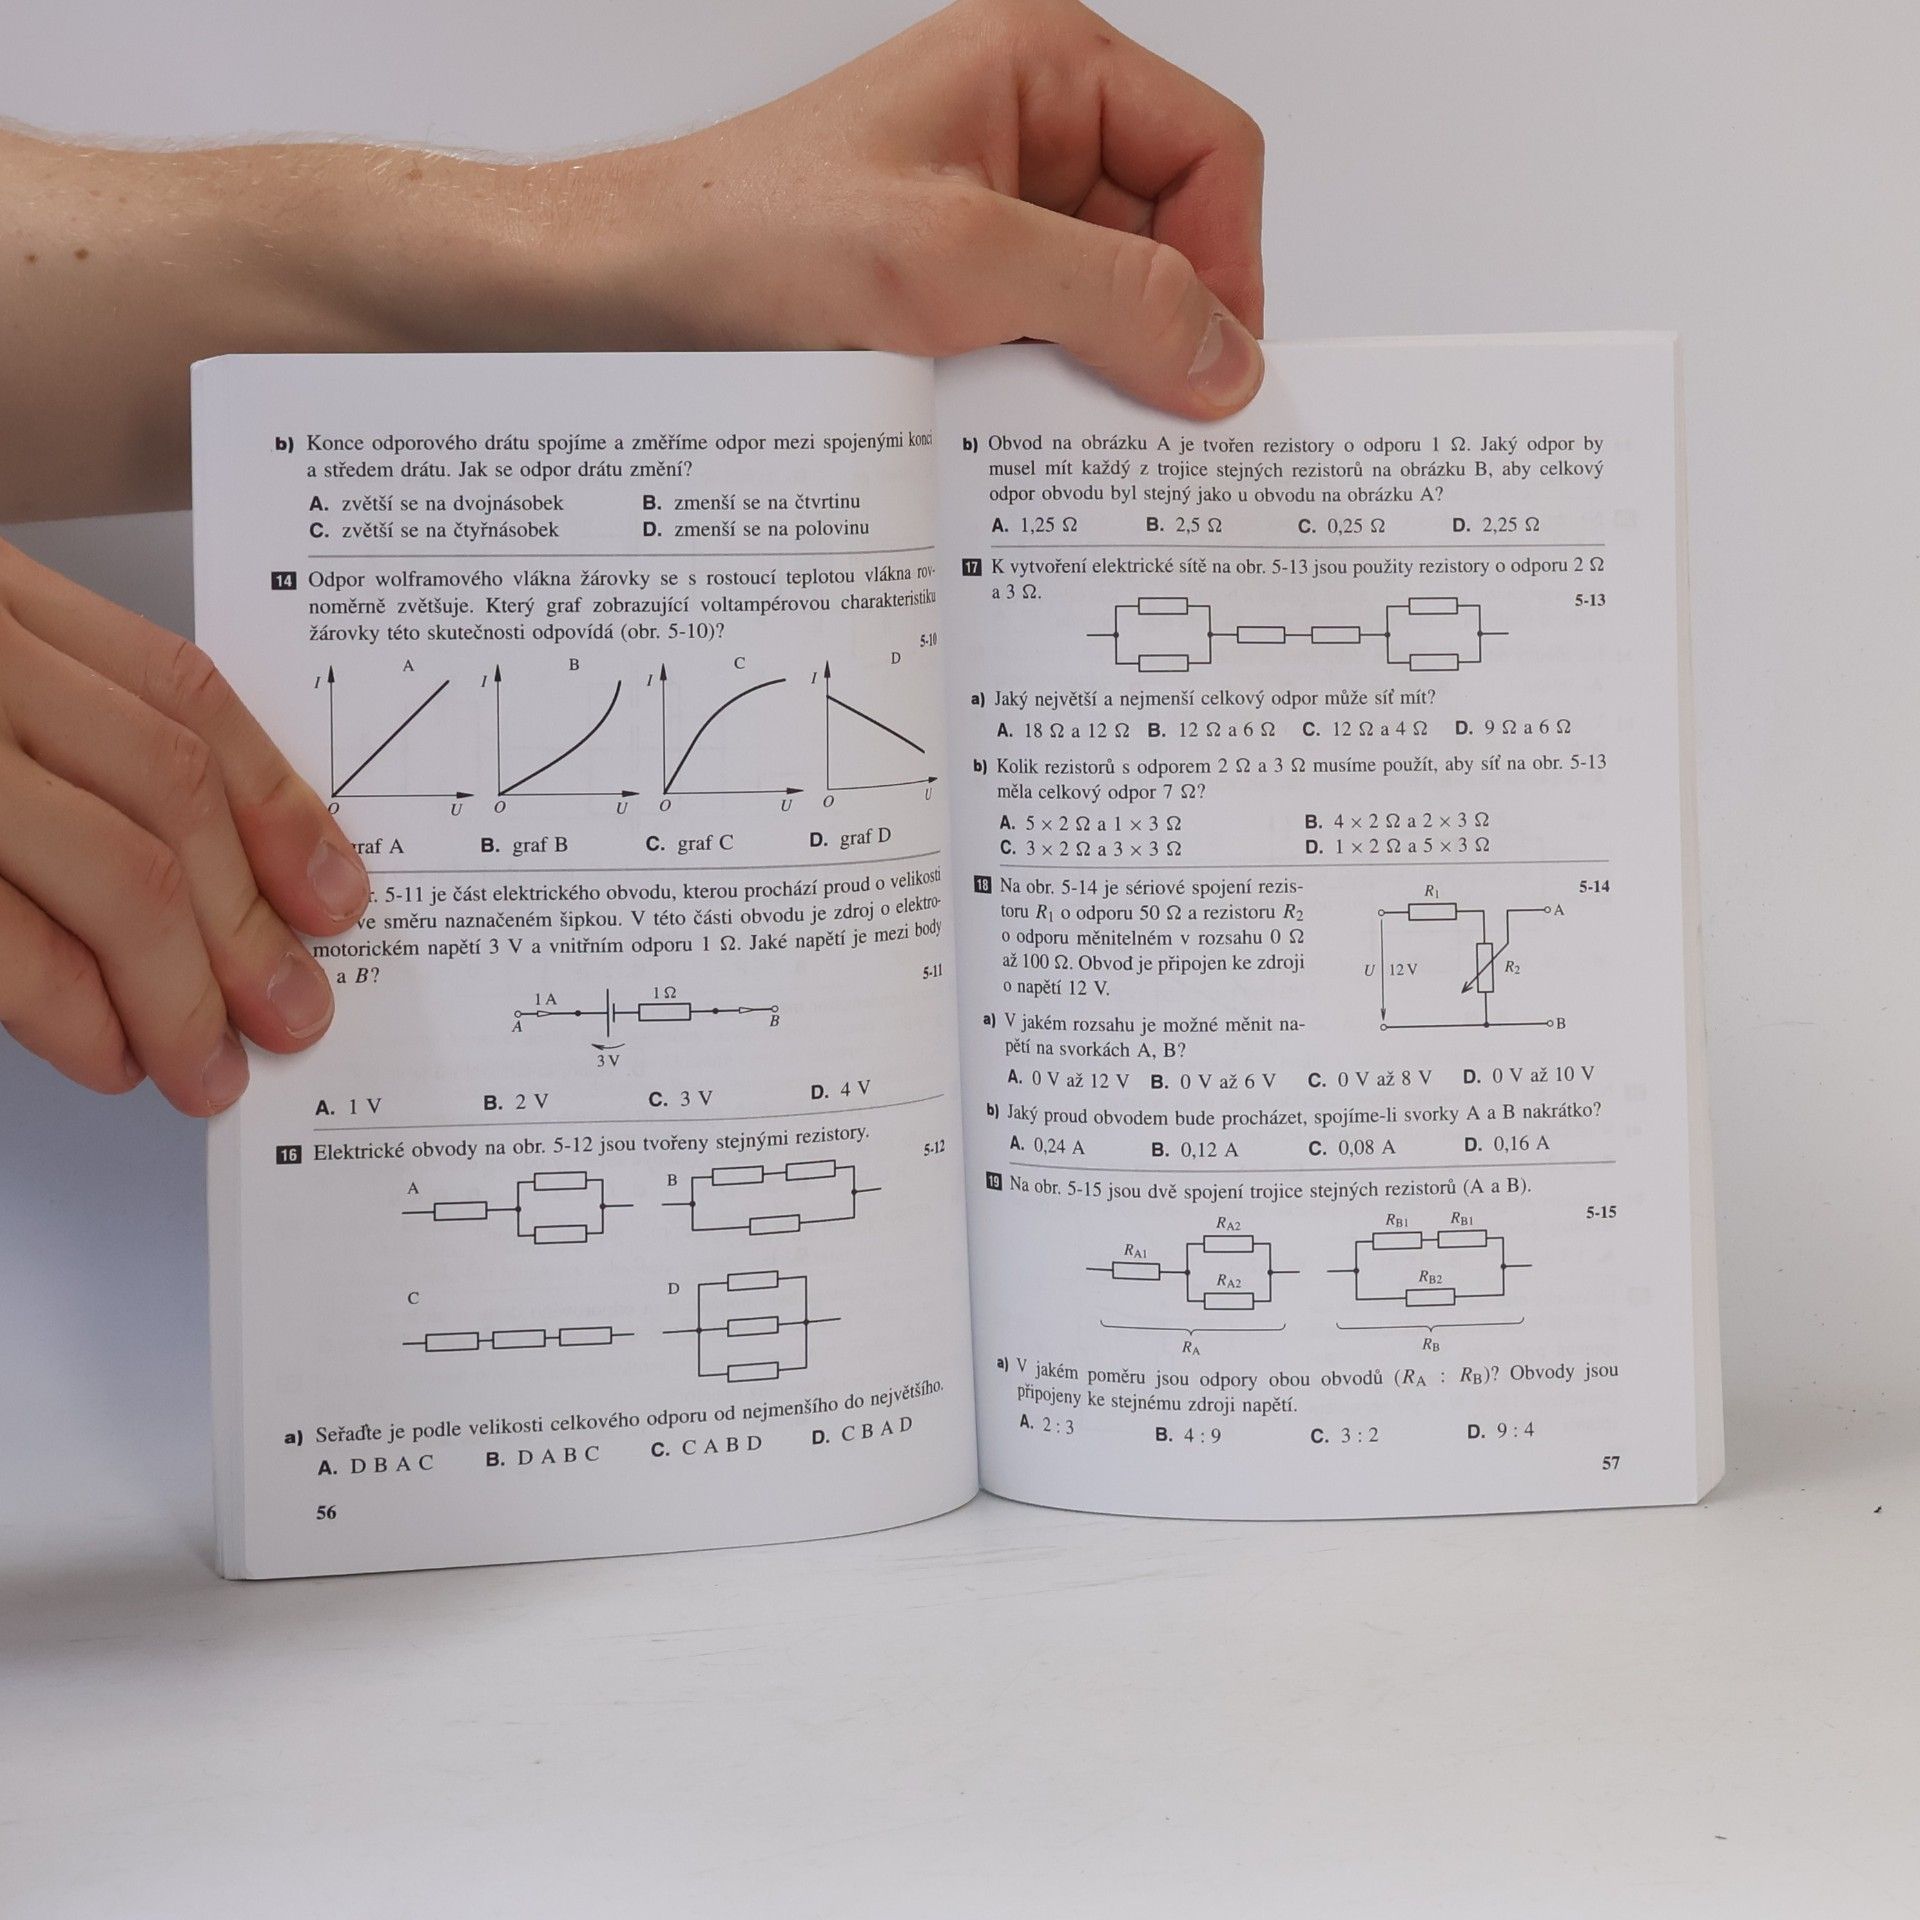 b) Konce odporového drátu spojíme a změříme odpor mezi spojenými konci
a středem drátu. Jak se odpor drátu změní?
A. zvětší se na dvojnásobek B. zmenší se na čtvrtinu
C. zvětší se na čtyřnásobek D. zmenší se na polovinu
14 Odpor wolframového vlákna žárovky se s rostoucí teplotou vlákna rov-
noměrně zvětšuje. Který graf zobrazující voltampérovou charakteristiku
žárovky této skutečnosti odpovídá (obr. 5-10)?
5-10
A B C D
I I I I
O U O U O U O U
graf A B. graf B C. graf C D. graf D
r. 5-11 je část elektrického obvodu, kterou prochází proud o velikosti
ve směru naznačeném šipkou. V této části obvodu je zdroj o elektro-
motorickém napětí 3 V a vnitřním odporu 1 Ω. Jaké napětí je mezi body
a B?
5-11
1 A 1 Ω
A B
3 V
A. 1 V B. 2 V C. 3 V D. 4 V
16 Elektrické obvody na obr. 5-12 jsou tvořeny stejnými rezistory.
5-12
A B
C D
a) Seřaďte je podle velikosti celkového odporu od nejmenšího do největšího.
A. D B A C B. D A B C C. C A B D D. C B A D
56
b) Obvod na obrázku A je tvořen rezistory o odporu 1 Ω. Jaký odpor by
musel mít každý z trojice stejných rezistorů na obrázku B, aby celkový
odpor obvodu byl stejný jako u obvodu na obrázku A?
A. 1,25 Ω B. 2,5 Ω C. 0,25 Ω D. 2,25 Ω
17 K vytvoření elektrické sítě na obr. 5-13 jsou použity rezistory o odporu 2 Ω
a 3 Ω.
5-13
a) Jaký největší a nejmenší celkový odpor může síť mít?
A. 18 Ω a 12 Ω B. 12 Ω a 6 Ω C. 12 Ω a 4 Ω D. 9 Ω a 6 Ω
b) Kolik rezistorů s odporem 2 Ω a 3 Ω musíme použít, aby síť na obr. 5-13
měla celkový odpor 7 Ω?
A. 5 × 2 Ω a 1 × 3 Ω B. 4 × 2 Ω a 2 × 3 Ω
C. 3 × 2 Ω a 3 × 3 Ω D. 1 × 2 Ω a 5 × 3 Ω
18 Na obr. 5-14 je sériové spojení rezis-
toru R1 o odporu 50 Ω a rezistoru R2
o odporu měnitelném v rozsahu 0 Ω
až 100 Ω. Obvod je připojen ke zdroji
o napětí 12 V.
5-14
R1
A
U 12 V R2
B
a) V jakém rozsahu je možné měnit na-
pětí na svorkách A, B?
A. 0 V až 12 V B. 0 V až 6 V C. 0 V až 8 V D. 0 V až 10 V
b) Jaký proud obvodem bude procházet, spojíme-li svorky A a B nakrátko?
A. 0,24 A B. 0,12 A C. 0,08 A D. 0,16 A
19 Na obr. 5-15 jsou dvě spojení trojice stejných rezistorů (A a B).
5-15
RA2 RB1 RB1
RA1
RA2 RB2
RA RB
a) V jakém poměru jsou odpory obou obvodů (RA : RB)? Obvody jsou
připojeny ke stejnému zdroji napětí.
A. 2 : 3 B. 4 : 9 C. 3 : 2 D. 9 : 4
57